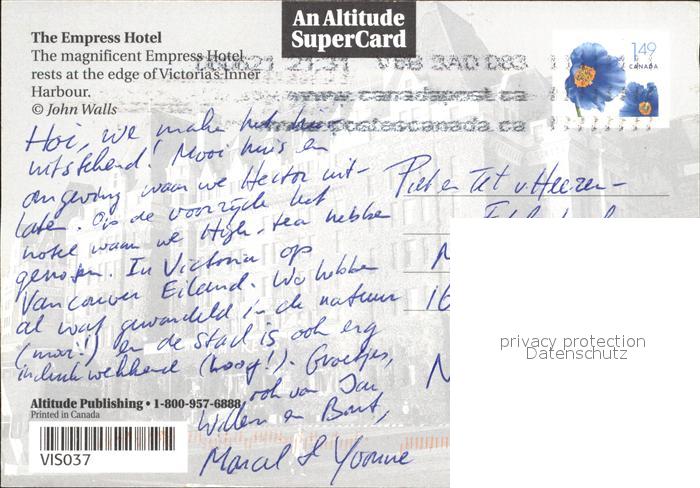 An Altitude
SuperCard
The Empress Hotel
The magnificent Empress Hotel
rests at the edge of Victoria's Inner
Harbour.
© John Walls
1.49
CANADA
www.canadapost.ca
postescanada.ca
Hoi, we maken het hier
uitstekend! Mooi huis en
omgeving waar we Hector uit-
laten. Op de voorzijde het
hotel waar we High-tea hebben
genoten. In Victoria op
Vancouver Eiland. We hebben
al wat gewandeld in de natuur
(mooi!) en de stad is ook erg
indrukwekkend (hoog!). Groetjes,
ook van Jan
Willem en Bart,
Marcel & Yvonne
Piet en v. Heezen-
16
N
privacy protection
Datenschutz
Altitude Publishing • 1-800-957-6888
Printed in Canada
VIS037